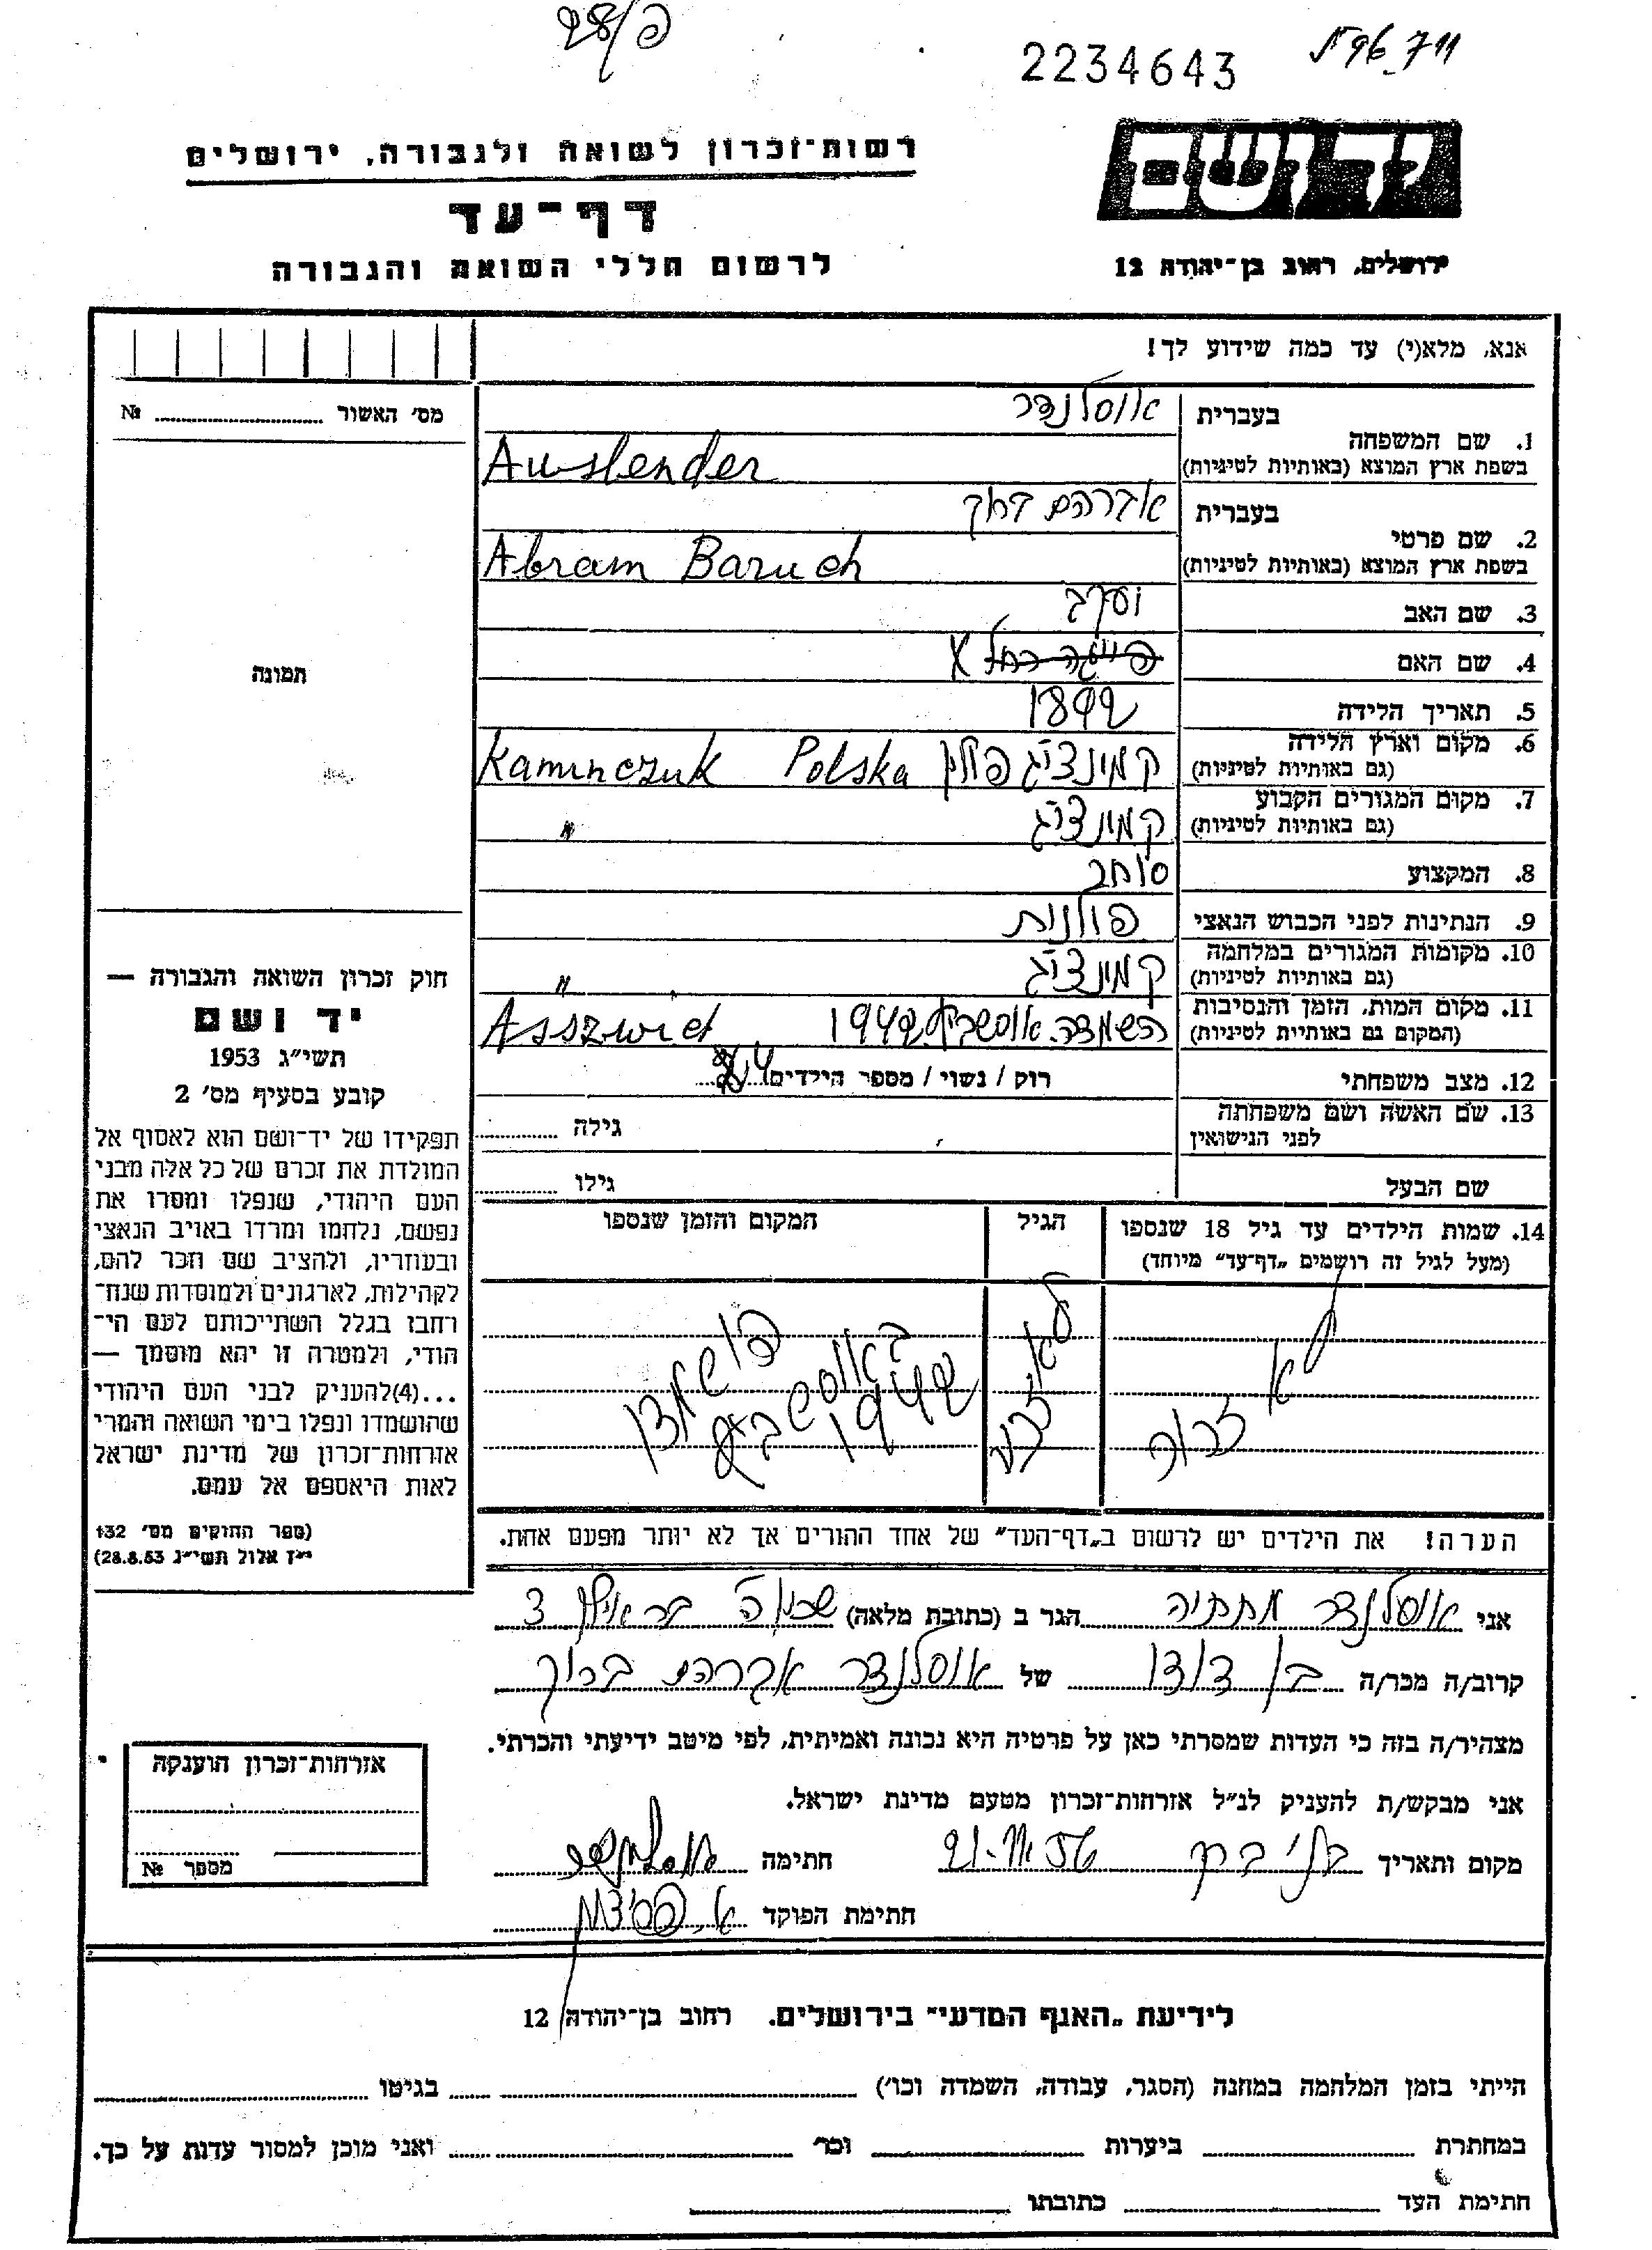 פ/28
2234643
יד ושם
ירושלים, רחוב בן־יהודה 12
רשות־זכרון לשואה ולגבורה, ירושלים
דף־עד
לרשום חללי השואה והגבורה
אנא, מלא(י) עד כמה שידוע לך!
מס' האשור № ........
1. שם המשפחה בעברית אוסלנדר
בשפת ארץ המוצא (באותיות לטיניות) Auslender
2. שם פרטי בעברית אברהם ברוך
בשפת ארץ המוצא (באותיות לטיניות) Abram Baruch
3. שם האב יעקב
4. שם האם
5. תאריך הלידה 1892
6. מקום וארץ הלידה (גם באותיות לטיניות) קמינציג פולין Kaminczuk Polska
7. מקום המגורים הקבוע (גם באותיות לטיניות) קמינציג "
8. המקצוע סוחר
9. הנתינות לפני הכבוש הנאצי פולנית
10. מקומות המגורים במלחמה (גם באותיות לטיניות) קמינציג "
11. מקום המות, הזמן והנסיבות (המקום גם באותיות לטיניות) השמדה אוסשביץ 1942 Asszwict
12. מצב משפחתי רוק / נשוי / מספר הילדים 4
13. שם האשה ושם משפחתה לפני הנישואין גילה ........
שם הבעל גילו ........
14. שמות הילדים עד גיל 18 שנספו (מעל לגיל זה רושמים „דף־עד" מיוחד) הגיל המקום והזמן שנספו
לא זכור לא זכור הושמדו באוסשביץ 1942
הערה! את הילדים יש לרשום ב„דף־העד" של אחד ההורים אך לא יותר מפעם אחת.
תמונה
חוק זכרון השואה והגבורה —
יד ושם
תשי״ג 1953
קובע בסעיף מס' 2
תפקידו של יד־ושם הוא לאסוף אל
המולדת את זכרם של כל אלה מבני
העם היהודי, שנפלו ומסרו את
נפשם, נלחמו ומרדו באויב הנאצי
ובעוזריו, ולהציב שם וזכר להם,
לקהילות, לארגונים ולמוסדות שנח־
רחבו בגלל השתייכותם לעם הי־
הודי, ולמטרה זו יהא מוסמך —
...(4)להעניק לבני העם היהודי
שהושמדו ונפלו בימי השואה והמרי
אזרחות־זכרון של מדינת ישראל
לאות היאספם אל עמם.
(ספר החוקים מס' 132
י״ז אלול תשי״ג 28.8.53)
אני אוסלנדר מתתיה הגר ב (כתובת מלאה)
קרוב/ה מכר/ה בן דודו של אוסלנדר אברהם ברוך
מצהיר/ה בזה כי העדות שמסרתי כאן על פרטיה היא נכונה ואמיתית, לפי מיטב ידיעתי והכרתי.
אני מבקש/ת להעניק לנ״ל אזרחות־זכרון מטעם מדינת ישראל.
מקום ותאריך בני ברק חתימה
חתימת הפוקד
אזרחות־זכרון הוענקה
מספר №
לידיעת „האגף המדעי" בירושלים. רחוב בן־יהודה 12
הייתי בזמן המלחמה במחנה (הסגר, עבודה, השמדה וכו') ........ בגיטו ........
במחתרת ........ ביערות ........ וכו' ........ ואני מוכן למסור עדות על כך.
חתימת העד ........ כתובתו ........